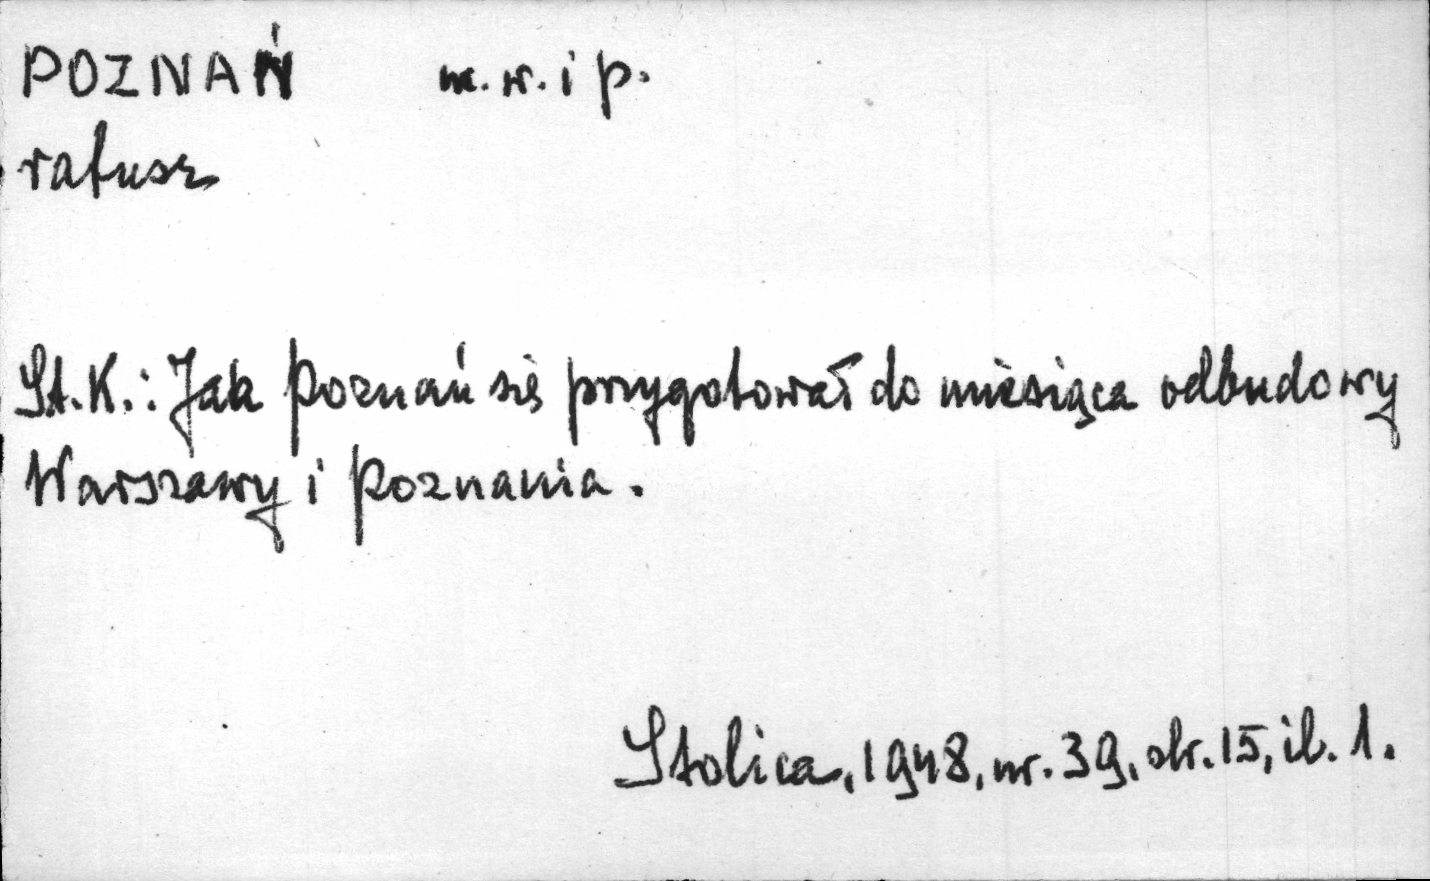 POZNAŃ m. w. i p.
ratusz
St. K.: Jak Poznań się przygotował do miesiąca odbudowy
Warszawy i Poznania.
Stolica, 1948, nr. 39, str. 15, il. 1.